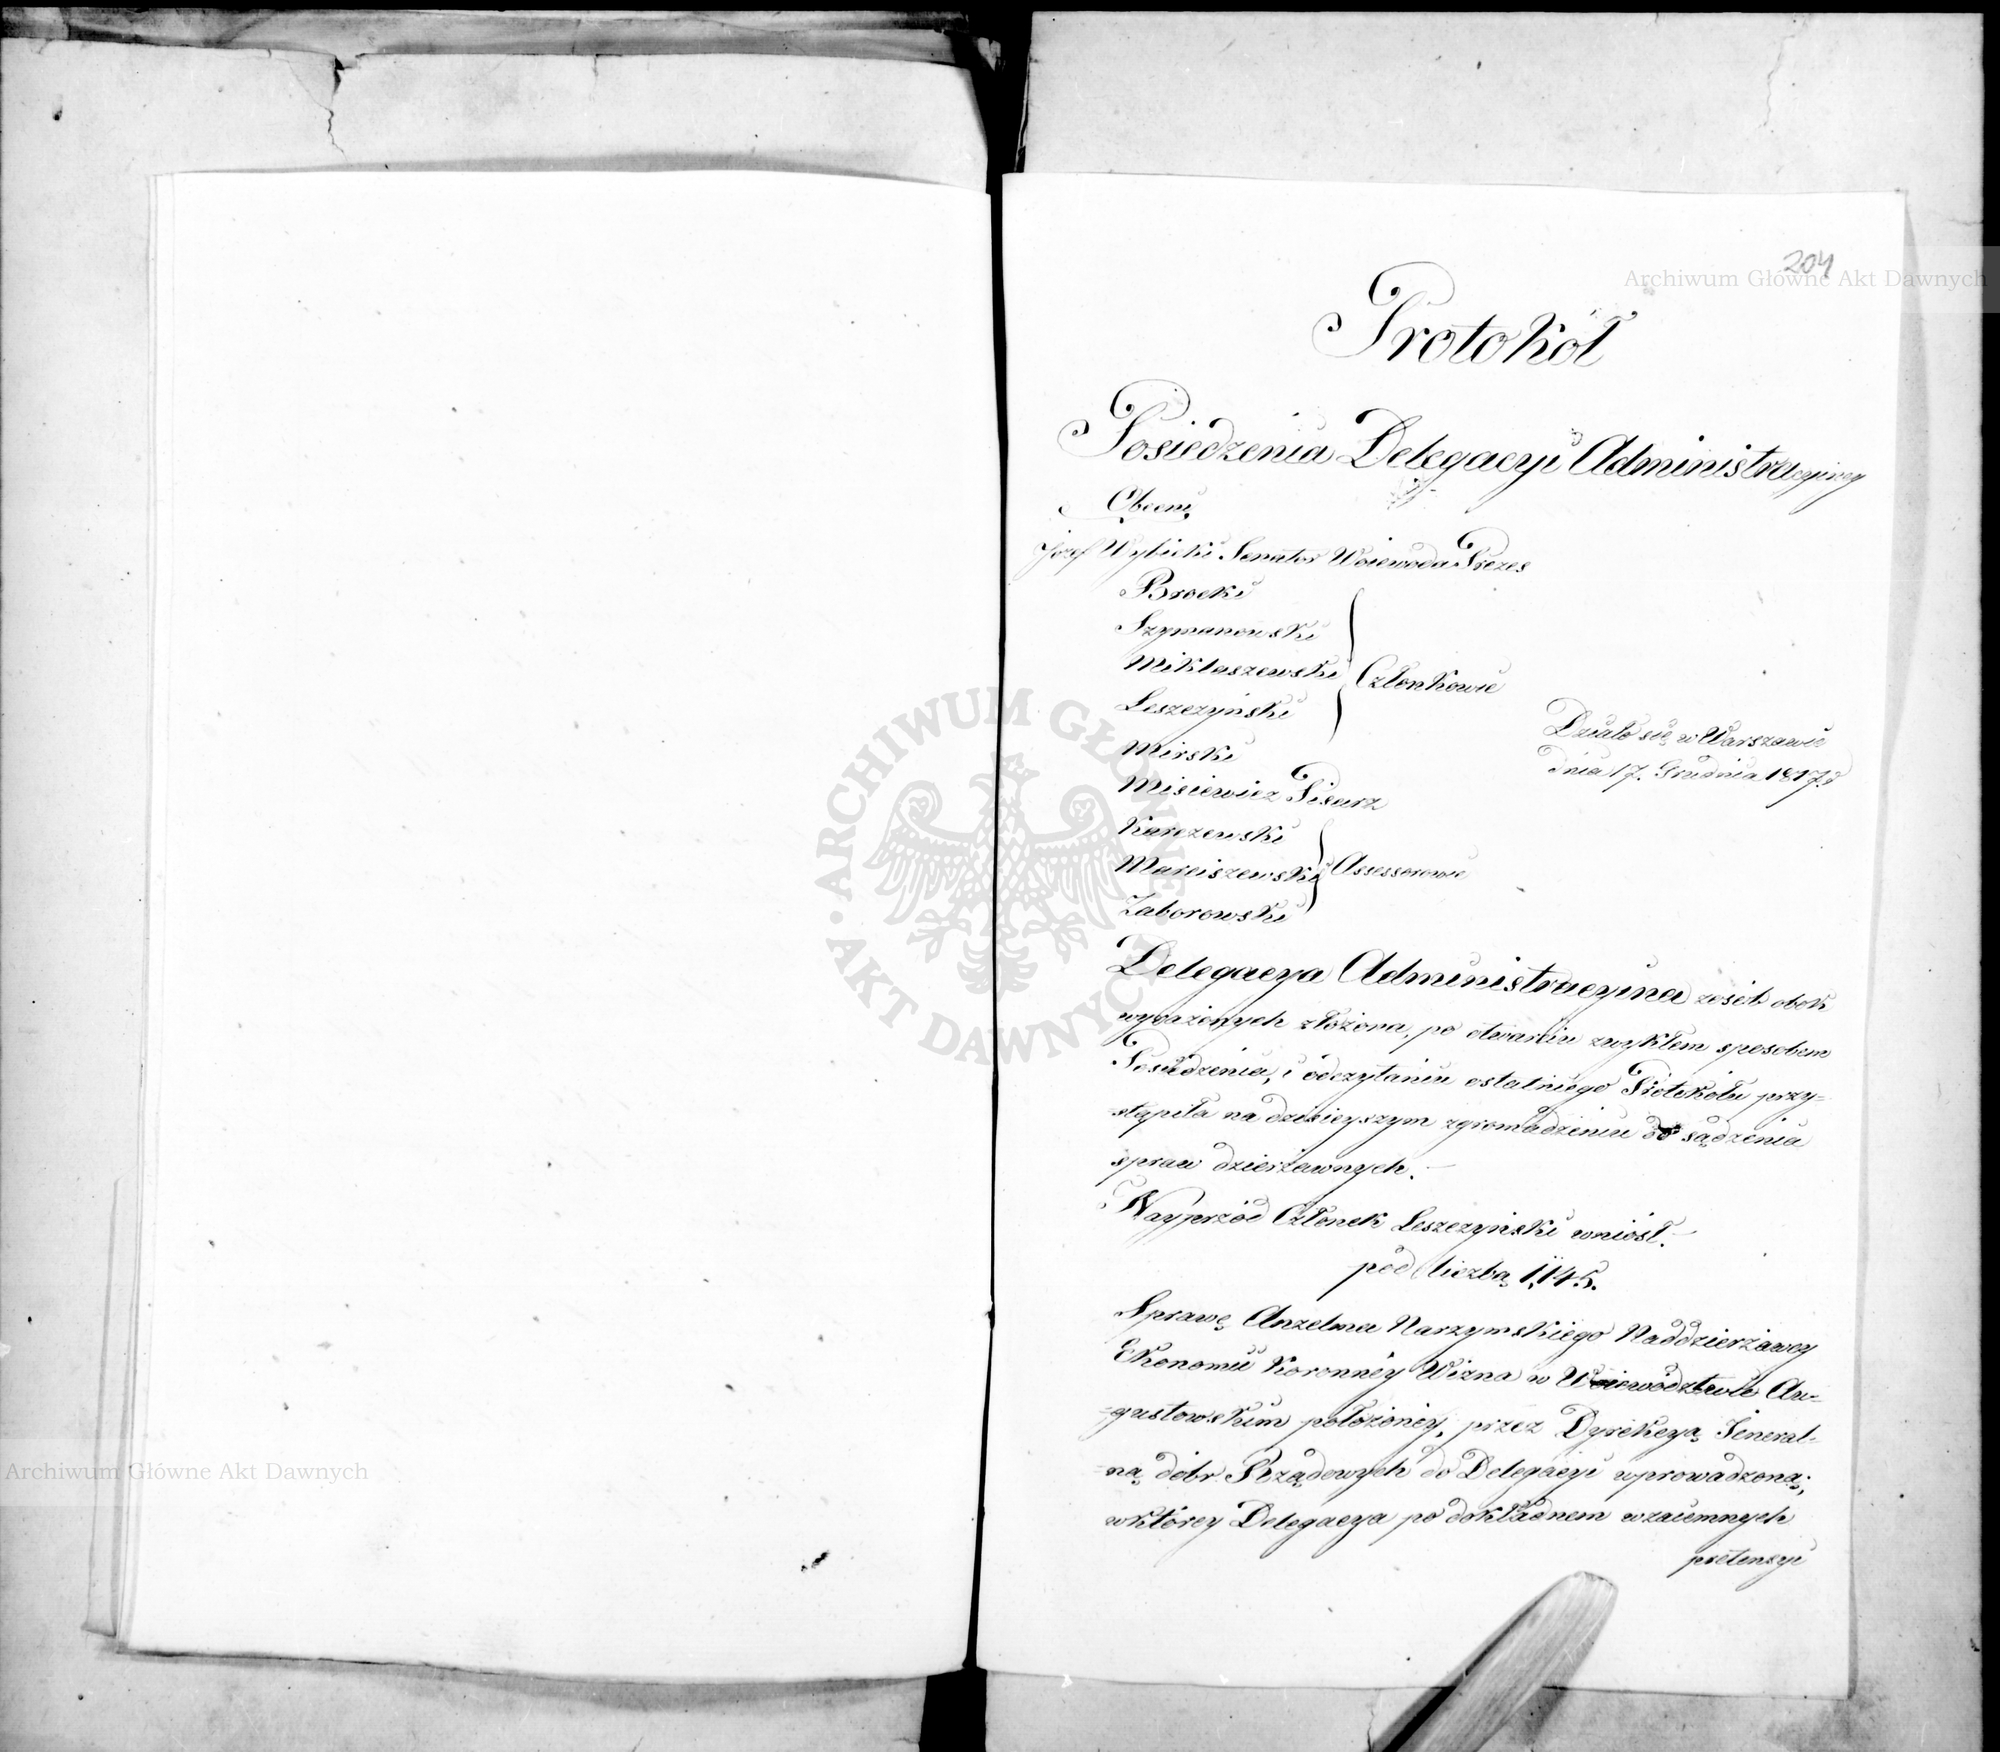 204
Archiwum Główne Akt Dawnych
Protokół
Posiedzenia Delegacyi Administracyiney
Obecni
Jozef Wybicki Senator Woiewoda Prezes
Brocki
Szymanowski
Miklaszewski
Leszczyński
Członkowie
Mirski
Misiewicz Pisarz
Karczewski
Marciszewski
Zaborowski
Assessorowie
Działo się w Warszawie
dnia 17. Grudnia 1817.
Delegacya Administracyina z osób obok
wyrażonych złożona, po otwarciu zwykłem sposobem
Posiedzenia, i odczytaniu ostatniego Protokołu przy=
=stąpiła na dzisieyszym zgromadzeniu do sądzenia
spraw dzierżawnych.
Nayprzód Członek Leszczyński wniósł.
pod liczbą 1,145.
Sprawę Anzelma Narzymskiego Naddzierżawcy
Ekonomii Koronnéy Wizna w Woiewództwie Au=
=gustowskim położoney, przez Dyrekcyą Jeneral=
=ną dóbr Rządowych do Delegacyi wprowadzoną;
w którey Delegacya po dokładnem wzaiemnych
pretensyi
ARCHIWUM GŁÓWNE AKT DAWNYCH
Archiwum Główne Akt Dawnych